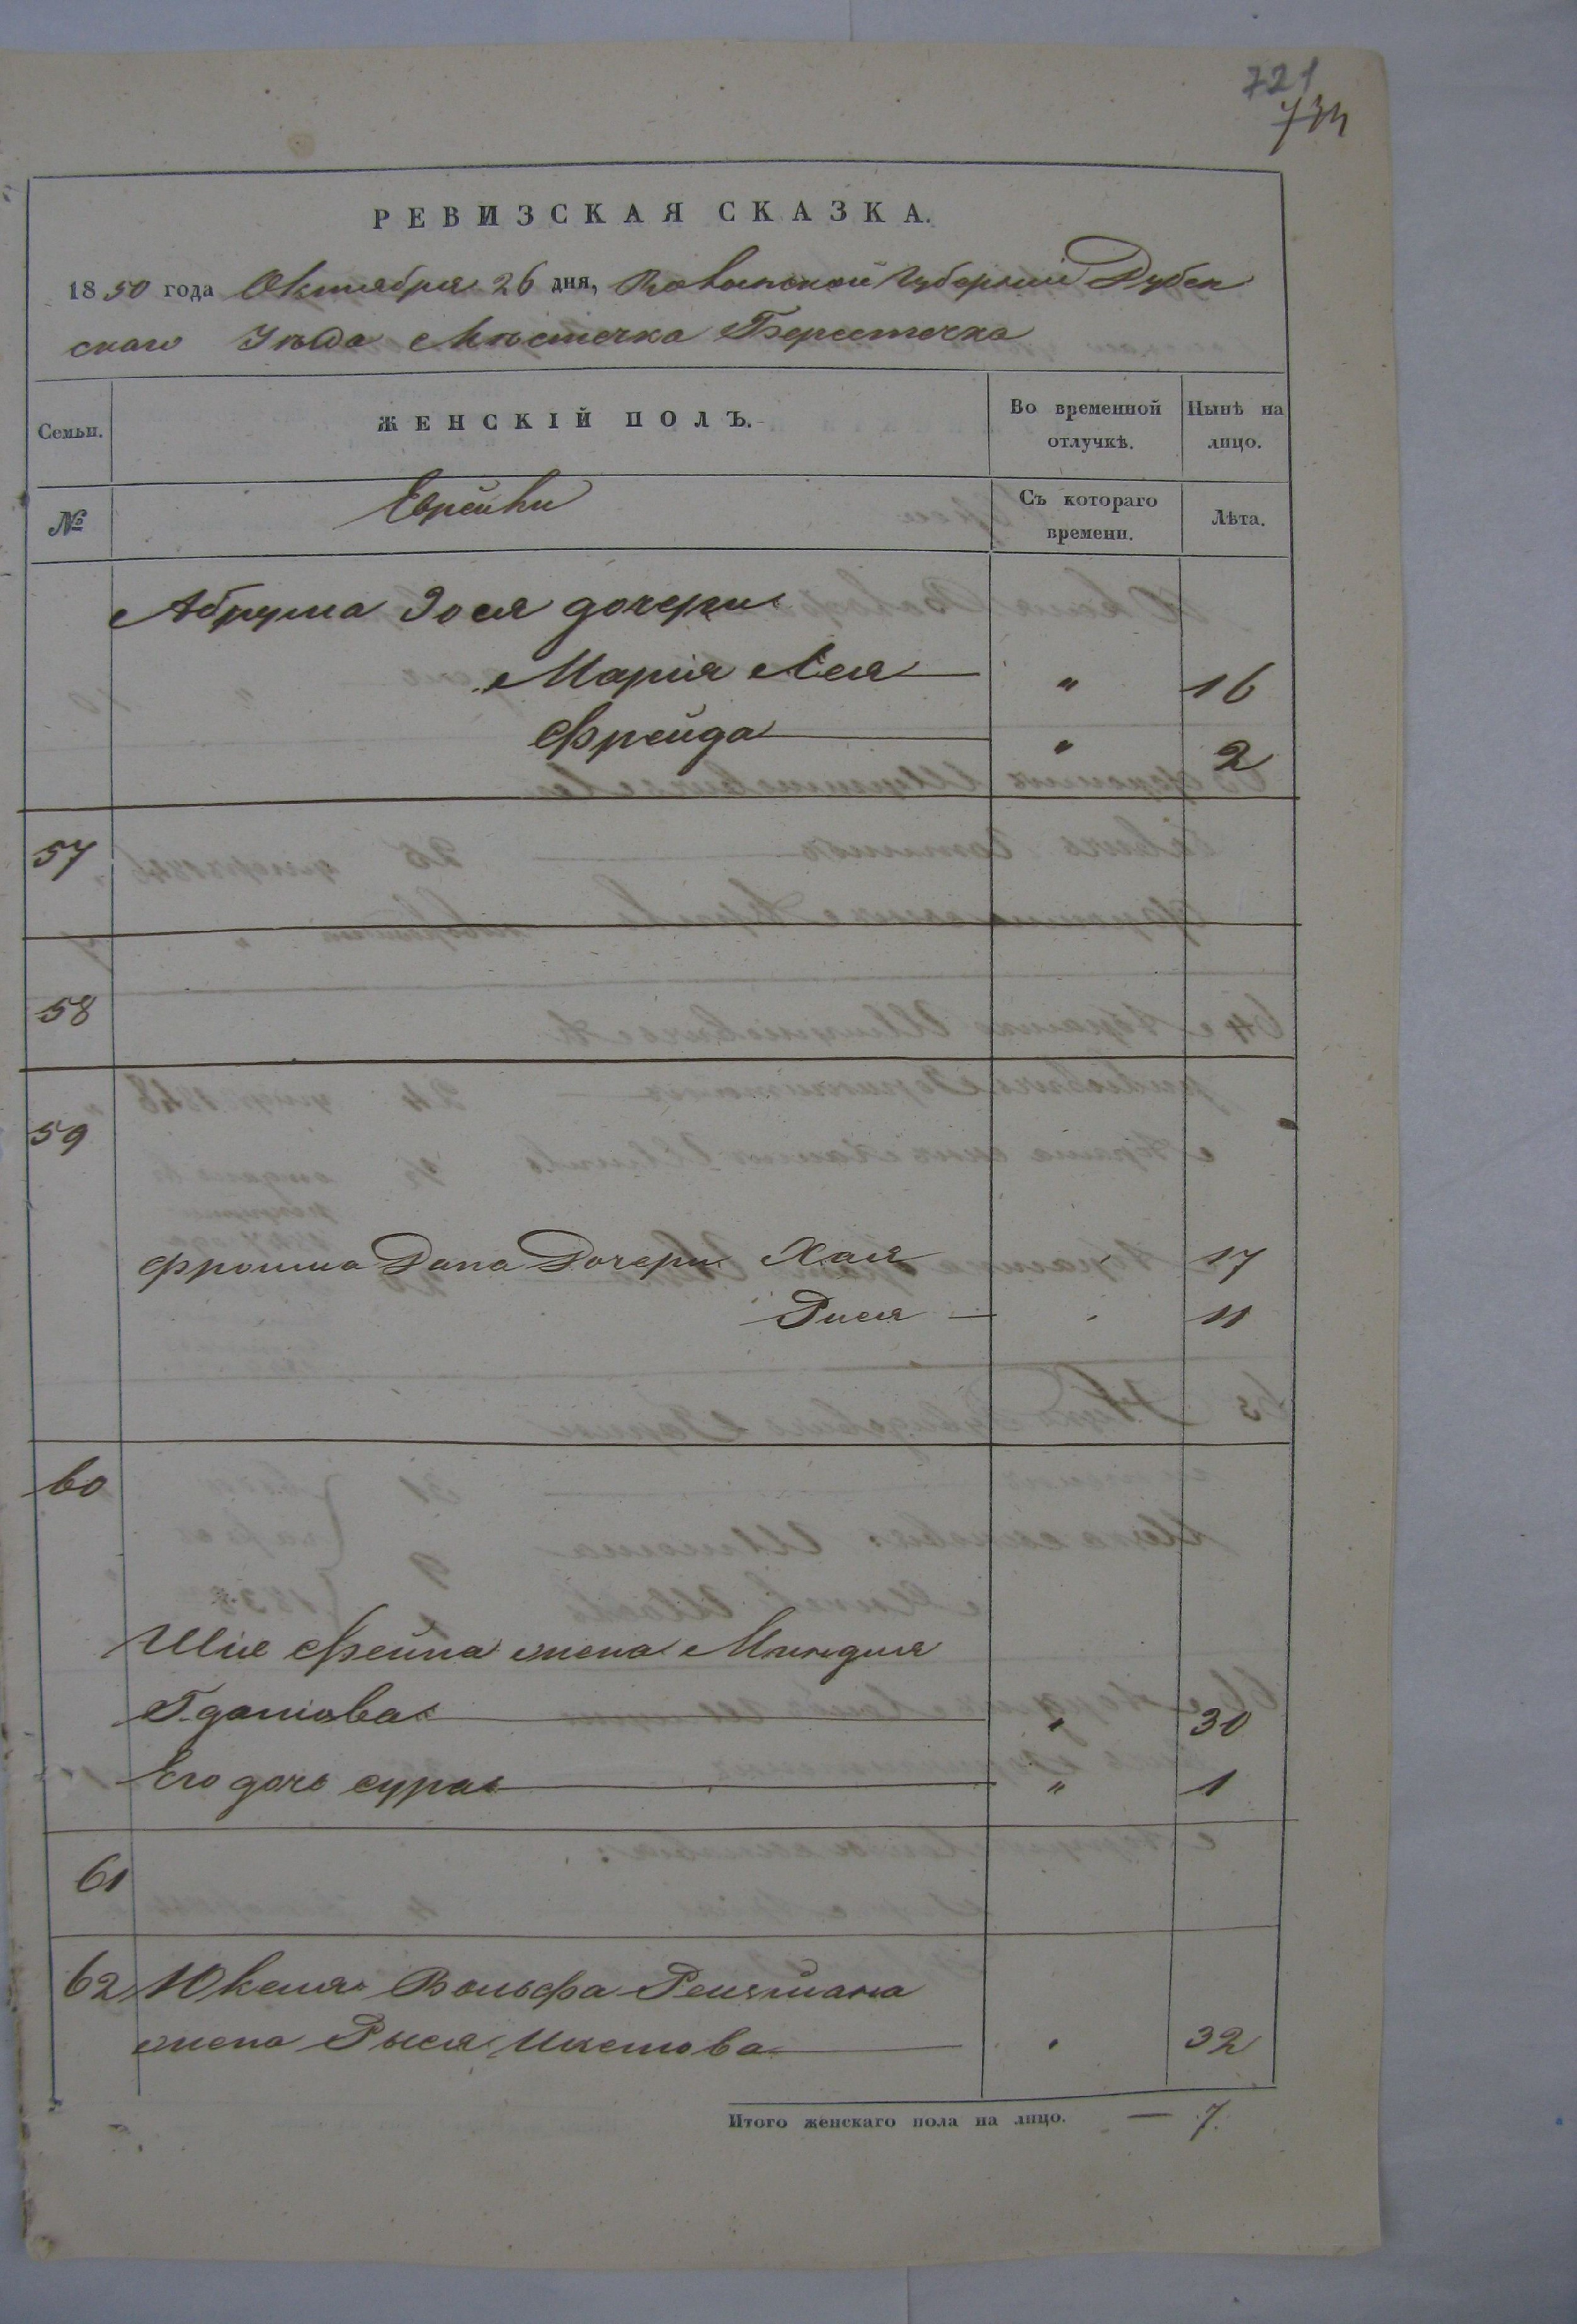 721
734
РЕВИЗСКАЯ СКАЗКА.
1850 года Октября 26 дня, Волынской Губерніи Дубен
скаго Уѣзда Мѣстечка Берестечка
Семьи.
ЖЕНСКІЙ ПОЛЪ.
Во временной отлучкѣ.
Нынѣ на лицо.
№
Еврейки
Съ котораго времени.
Лѣта.
Абрума Зося дочери
Марія Лея " 16
Фрейда " 2
57
58
59
Фроима Дана Дочери Хая " 17
Рися — " 11
60
Шіе Фейна жена Миндля
Гданіова " 30
Его дочь сура " 1
61
62 Юкеля Вольфа
жена Рыся Ицкова " 32
Итого женскаго пола на лицо. — 7.